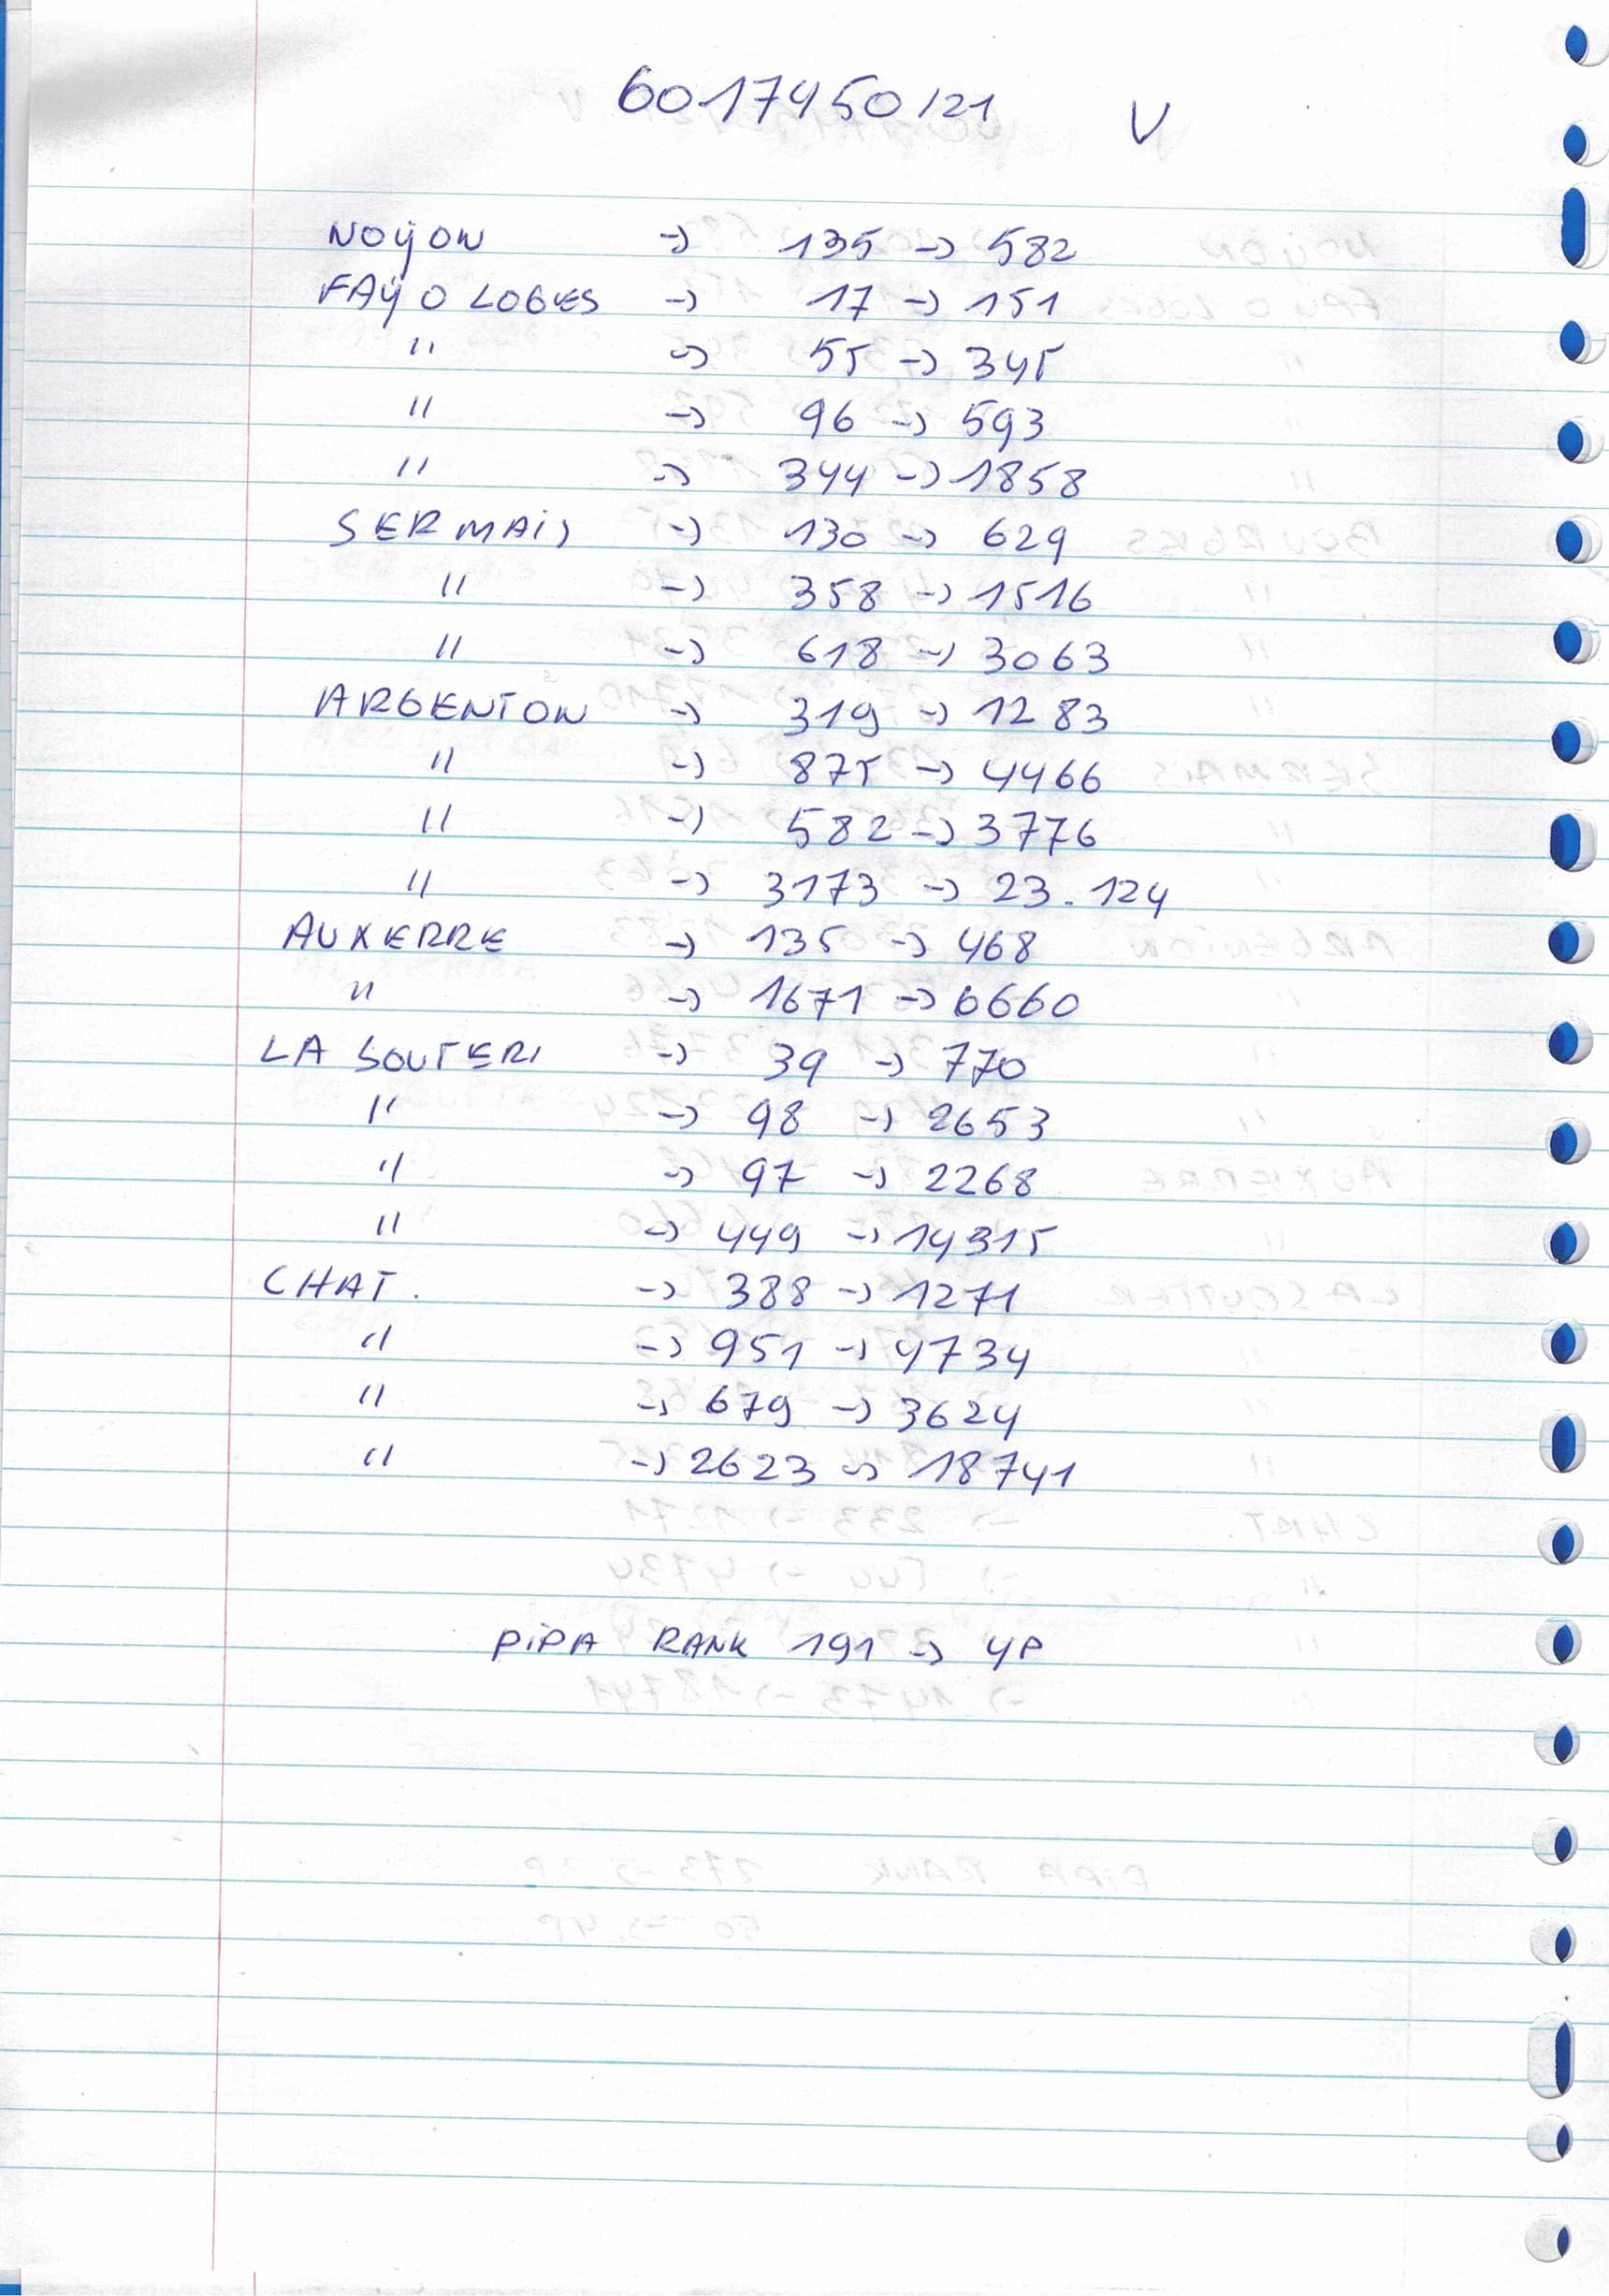 6017450/21 V
NOYON -> 135 -> 582
FAY O LOGES -> 17 -> 151
" -> 55 -> 345
" -> 96 -> 593
" -> 344 -> 1858
SERMAIS -> 130 -> 629
" -> 358 -> 1516
" -> 618 -> 3063
ARGENTON -> 319 -> 1283
" -> 875 -> 4466
" -> 582 -> 3776
" -> 3173 -> 23.124
AUXERRE -> 135 -> 468
" -> 1671 -> 6660
LA SOUTERI -> 39 -> 770
" -> 98 -> 2653
" -> 97 -> 2268
" -> 449 -> 14315
CHAT. -> 388 -> 1271
" -> 951 -> 4734
" -> 679 -> 3624
" -> 2623 -> 18741
PIPA RANK 191 -> 4P